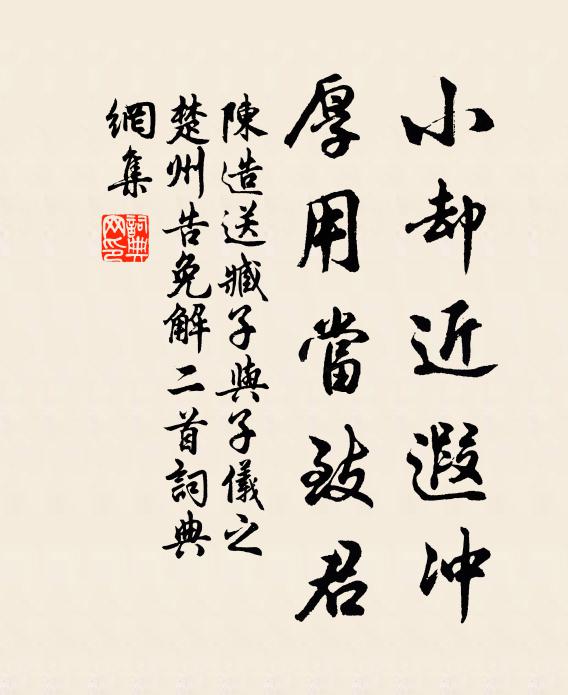 小却近遐冲
厚用當致君
陳造送臧子與子儀之
楚州告免解二首詞典
網集
詞典網印